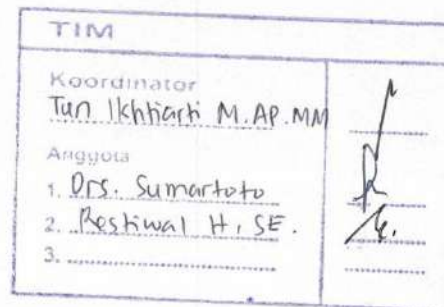 TIM
Koordinator
Tun Ikhtiarti M.AP.MM
Anggota
1. Drs. Sumartoto
2. Restiwal H, SE.
3.